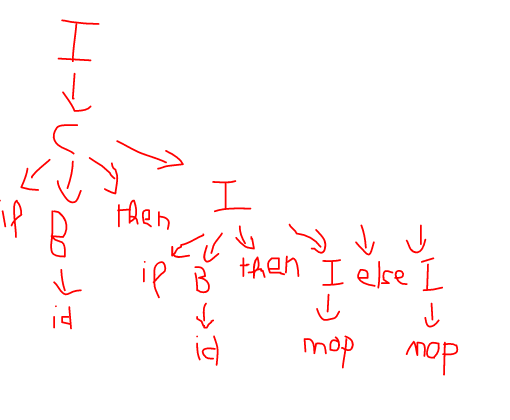 I
C
if B then I
id if B then I else I
id nop nop